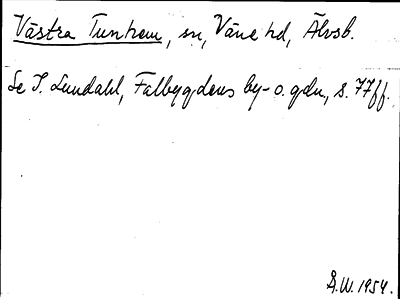 Västra Tunhem, sn, Väne hd, Älvsb.
Se I. Lundahl, Falbygdens by- o. gdn, s. 77ff.
A.W. 1954.